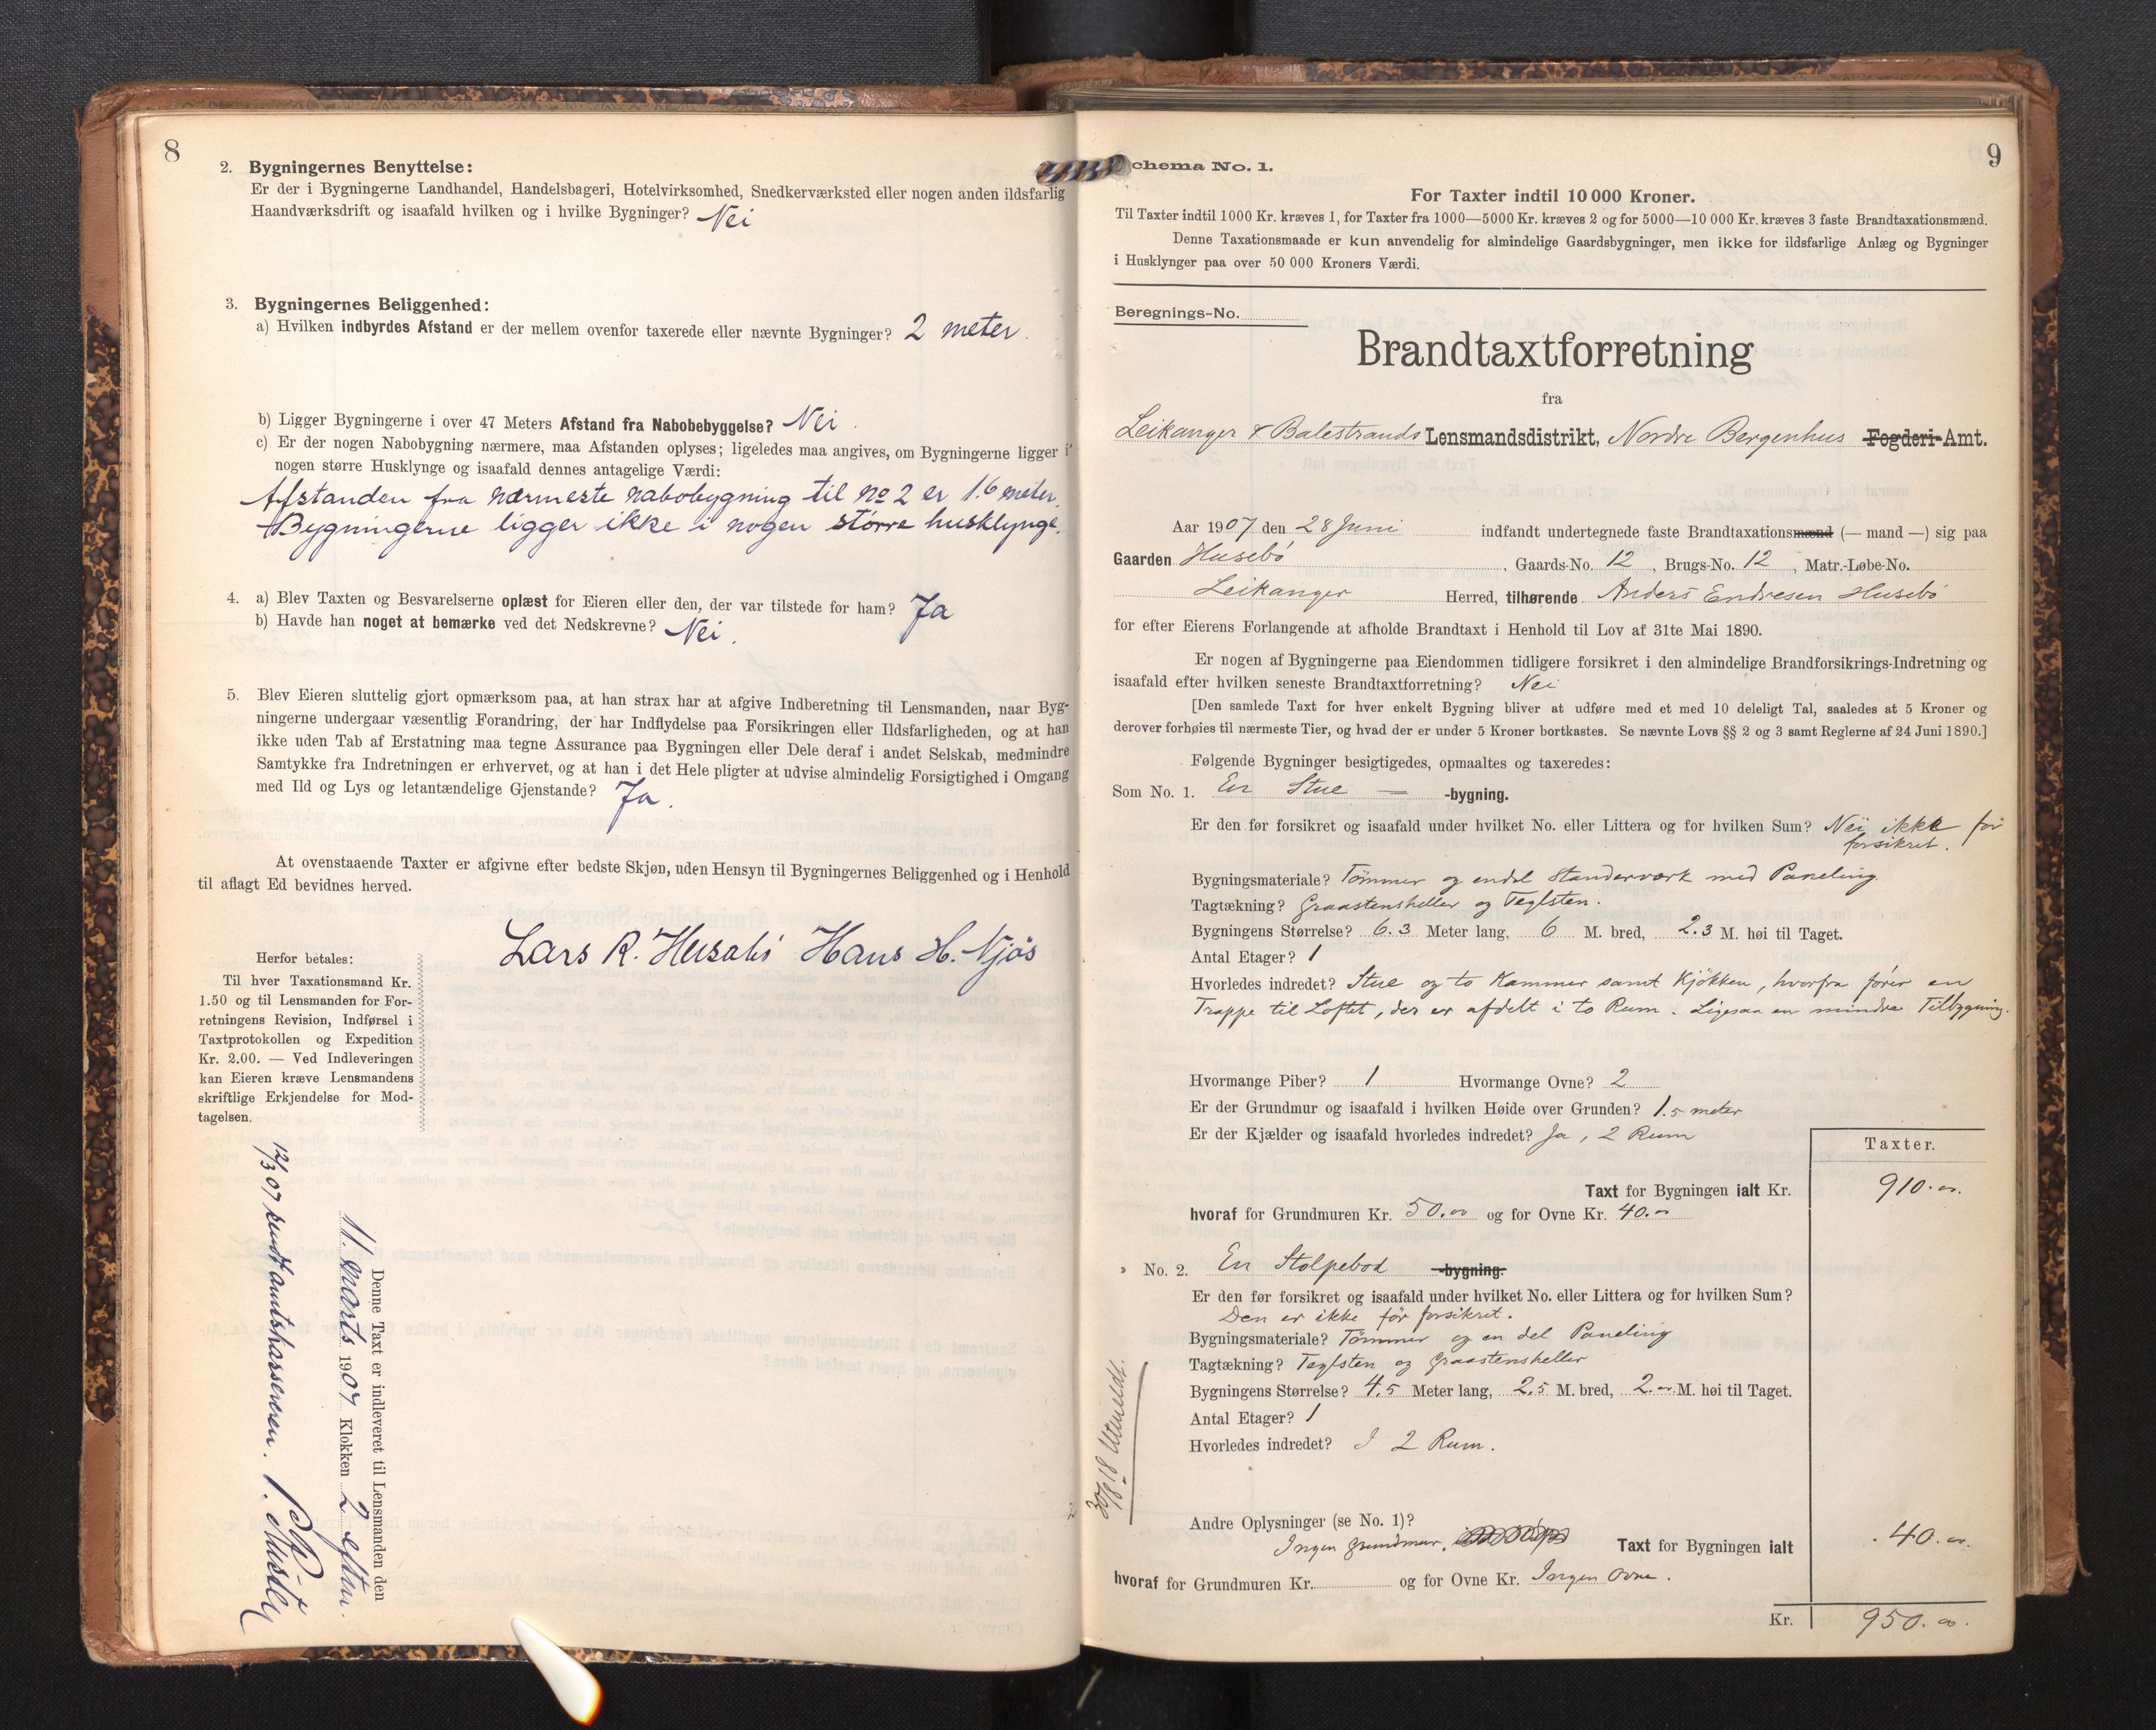 8
2. Bygningernes Benyttelse:
Er der i Bygningerne Landhandel, Handelsbageri, Hotelvirksomhed, Snedkerværksted eller nogen anden ildsfarlig
Haandværksdrift og isaafald hvilken og i hvilke Bygninger? Nei
3. Bygningernes Beliggenhed:
a) Hvilken indbyrdes Afstand er der mellem ovenfor taxerede eller nævnte Bygninger? 2 meter.
b) Ligger Bygningerne i over 47 Meters Afstand fra Nabobebyggelse? Nei.
c) Er der nogen Nabobygning nærmere, maa Afstanden oplyses; ligeledes maa angives, om Bygningerne ligger i
nogen større Husklynge og isaafald dennes antagelige Værdi:
Afstanden fra nærmeste nabobygning til no 2 er 1.6 meter.
Bygningerne ligger ikke i nogen större husklynge.
4. a) Blev Taxten og Besvarelserne oplæst for Eieren eller den, der var tilstede for ham? Ja
b) Havde han noget at bemærke ved det Nedskrevne? Nei.
5. Blev Eieren sluttelig gjort opmærksom paa, at han strax har at afgive Indberetning til Lensmanden, naar Byg-
ningerne undergaar væsentlig Forandring, der har Indflydelse paa Forsikringen eller Ildsfarligheden, og at han
ikke uden Tab af Erstatning maa tegne Assurance paa Bygningen eller Dele deraf i andet Selskab, medmindre
Samtykke fra Indretningen er erhvervet, og at han i det Hele pligter at udvise almindelig Forsigtighed i Omgang
med Ild og Lys og letantændelige Gjenstande? Ja.
At ovenstaaende Taxter er afgivne efter bedste Skjøn, uden Hensyn til Bygningernes Beliggenhed og i Henhold
til aflagt Ed bevidnes herved.
Lars R. Husabö Hans H. Njøs
Herfor betales:
Til hver Taxationsmand Kr.
1.50 og til Lensmanden for For-
retningens Revision, Indførsel i
Taxtprotokollen og Expedition
Kr. 2.00. — Ved Indleveringen
kan Eieren kræve Lensmandens
skriftlige Erkjendelse for Mod-
tagelsen.
Denne Taxt er indleveret til Lensmanden den
11. marts 1907 Klokken 2 efterm.
12/3 07 sendt amtskassereren.
9
Schema No. 1.
For Taxter indtil 10 000 Kroner.
Til Taxter indtil 1000 Kr. kræves 1, for Taxter fra 1000—5000 Kr. kræves 2 og for 5000—10 000 Kr. kræves 3 faste Brandtaxationsmænd.
Denne Taxationsmaade er kun anvendelig for almindelige Gaardsbygninger, men ikke for ildsfarlige Anlæg og Bygninger
i Husklynger paa over 50 000 Kroners Værdi.
Beregnings-No.
Brandtaxtforretning
fra
Leikanger & Balestrands Lensmandsdistrikt, Nordre Bergenhus Fogderi-Amt.
Aar 1907 den 28 Juni indfandt undertegnede faste Brandtaxationsmænd (— mand —) sig paa
Gaarden Husebö, Gaards-No. 12, Brugs-No. 12, Matr.-Løbe-No.
Leikanger Herred, tilhørende Anders Endresen Husebö
for efter Eierens Forlangende at afholde Brandtaxt i Henhold til Lov af 31te Mai 1890.
Er nogen af Bygningerne paa Eiendommen tidligere forsikret i den almindelige Brandforsikrings-Indretning og
isaafald efter hvilken seneste Brandtaxtforretning? Nei
[Den samlede Taxt for hver enkelt Bygning bliver at udføre med et med 10 deleligt Tal, saaledes at 5 Kroner og
derover forhøies til nærmeste Tier, og hvad der er under 5 Kroner bortkastes. Se nævnte Lovs §§ 2 og 3 samt Reglerne af 24 Juni 1890.]
Følgende Bygninger besigtigedes, opmaaltes og taxeredes:
Som No. 1. En Stue — -bygning.
Er den før forsikret og isaafald under hvilket No. eller Littera og for hvilken Sum? Nei ikke för
forsikret.
Bygningsmateriale? Tömmer og endel Standerværk med Paneling
Tagtækning? Graastensheller og Teglsten.
Bygningens Størrelse? 6.3 Meter lang, 6 M. bred, 2.3 M. høi til Taget.
Antal Etager? 1
Hvorledes indredet? Stue og to Kammer samt Kjökken, hvorfra förer en
Trappe til Loftet, der er afdelt i to Rum. Ligesaa en mindre Tilbygning.
Hvormange Piber? 1 Hvormange Ovne? 2
Er der Grundmur og isaafald i hvilken Høide over Grunden? 1.5 meter
Er der Kjælder og isaafald hvorledes indredet? Ja, 2 Rum
Taxter.
Taxt for Bygningen ialt Kr. 910.00.
hvoraf for Grundmuren Kr. 50.00 og for Ovne Kr. 40.-
" No. 2. En Stolpebod -bygning.
Er den før forsikret og isaafald under hvilket No. eller Littera og for hvilken Sum?
Den er ikke för forsikret.
Bygningsmateriale? Tömmer og en del Paneling
Tagtækning? Teglsten og Graastensheller
Bygningens Størrelse? 4.5 Meter lang, 2.5 M. bred, 2.- M. høi til Taget.
Antal Etager? 1
Hvorledes indredet? I 2 Rum.
Andre Oplysninger (se No. 1)?
Ingen grundmur. Taxt for Bygningen ialt 40.00.
hvoraf for Grundmuren Kr. og for Ovne Kr. Ingen Ovne.
Kr. 950.00.
30/8 18 Utmeldt.